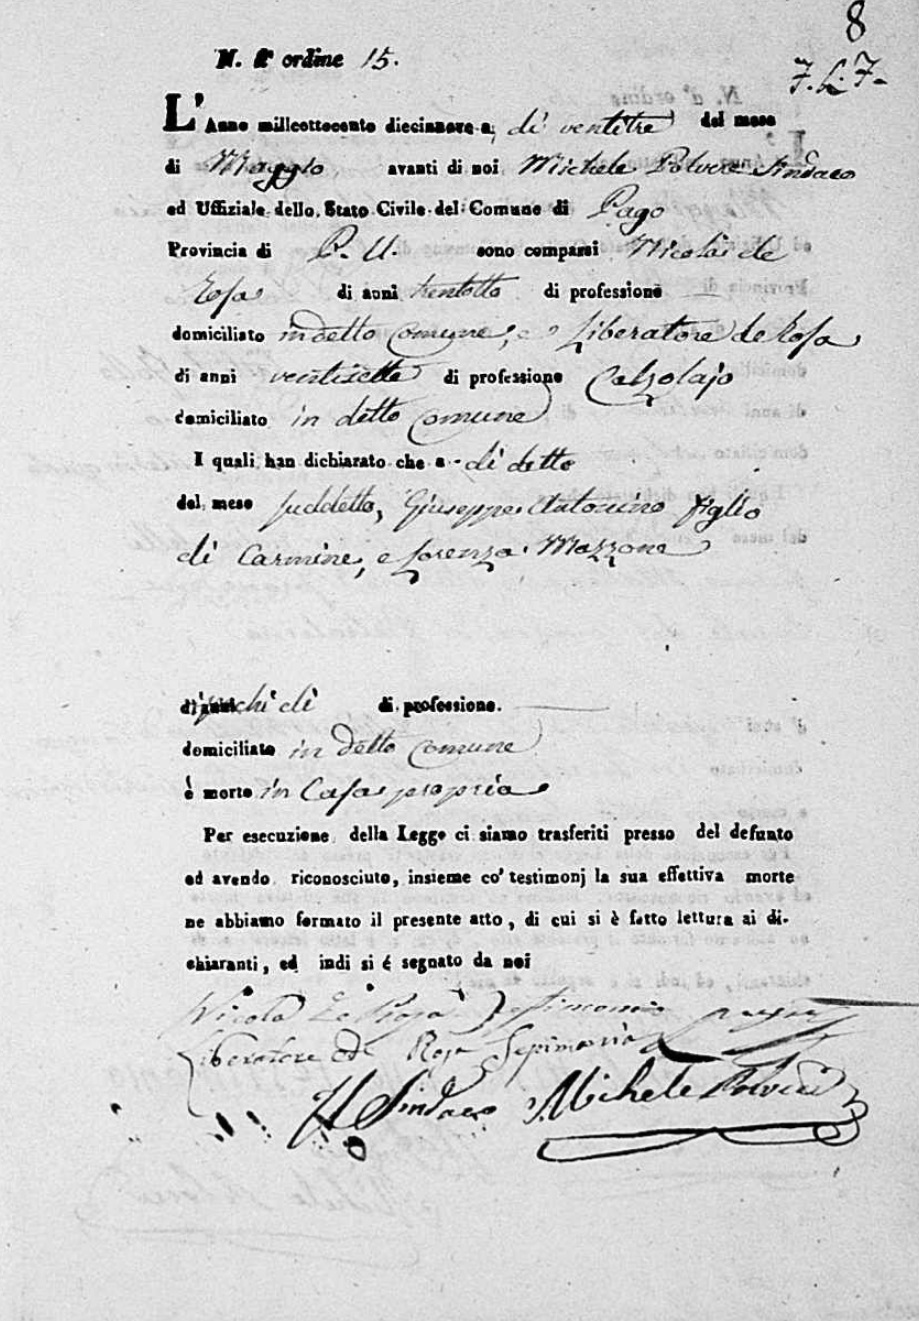 8
N. d' ordine 15.
L' Anno millcottocento diecinnove a, dì ventitre del mese
di Maggio avanti di noi Michele Polvere Sindaco
ed Uffiziale dello Stato Civile del Comune di Pago
Provincia di P. U. sono comparsi Nicola de
Rosa di anni trentotto di professione —
domiciliato in detto Comune, e Liberatore de Rosa
di anni ventisette di professione Calzolajo
domiciliato in detto Comune
I quali han dichiarato che a dì detto
del mese suddetto, Giuseppe Antonino figlio
di Carmine, e Lorenza Mazzone
di anni pochi dì di professione. —
domiciliato in detto Comune
è morto in Casa propria
Per esecuzione della Legge ci siamo trasferiti presso del defunto
ed avendo riconosciuto, insieme co' testimonj la sua effettiva morte
ne abbiamo formato il presente atto, di cui si è fatto lettura ai di-
chiaranti, ed indi si é segnato da noi
Nicola De Rosa
Liberatore de Rosa
Il Sindaco Michele Polvere